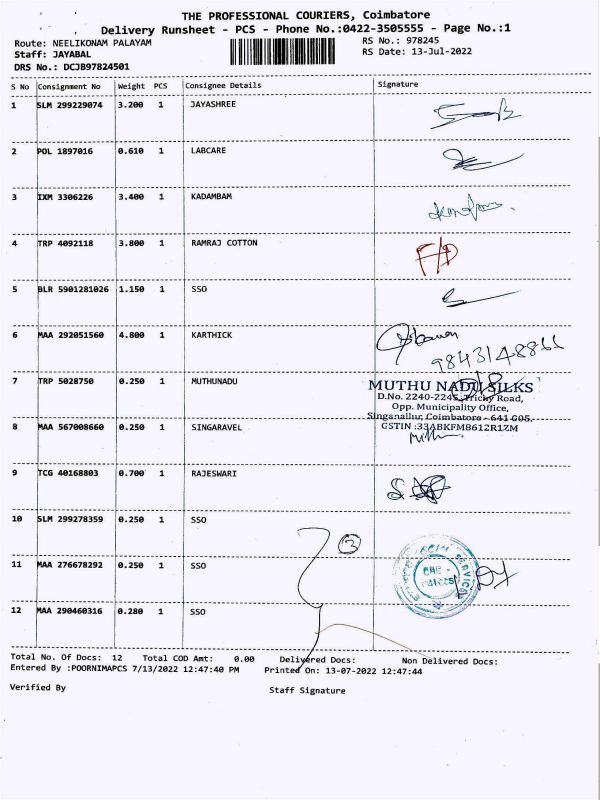 THE PROFESSIONAL COURIERS, Coimbatore
Delivery Runsheet - PCS - Phone No.:0422-3505555 - Page No.:1
Route: NEELIKONAM PALAYAM
RS No.: 978245
Staff: JAYABAL
RS Date: 13-Jul-2022
DRS No.: DCJB97824501
S No Consignment No Weight PCS Consignee Details Signature
1 SLM 299229074 3.200 1 JAYASHREE
2 POL 1897016 0.610 1 LABCARE
3 IXM 3306226 3.400 1 KADAMBAM
4 TRP 4092118 3.800 1 RAMRAJ COTTON F/D
5 BLR 5901281026 1.150 1 SSO
6 MAA 292051560 4.800 1 KARTHICK
7 TRP 5028750 0.250 1 MUTHUNADU
MUTHU NADU SILKS
D.No. 2240-2245, Trichy Road,
Opp. Municipality Office,
Singanallur, Coimbatore - 641 005.
GSTIN :33ABKFM8612R1ZM
8 MAA 567008660 0.250 1 SINGARAVEL
9 TCG 40168803 0.700 1 RAJESWARI
10 SLM 299278359 0.250 1 SSO
3
11 MAA 276678292 0.250 1 SSO
12 MAA 290460316 0.280 1 SSO
Total No. Of Docs: 12 Total COD Amt: 0.00 Delivered Docs: Non Delivered Docs:
Entered By :POORNIMAPCS 7/13/2022 12:47:40 PM Printed On: 13-07-2022 12:47:44
Verified By Staff Signature